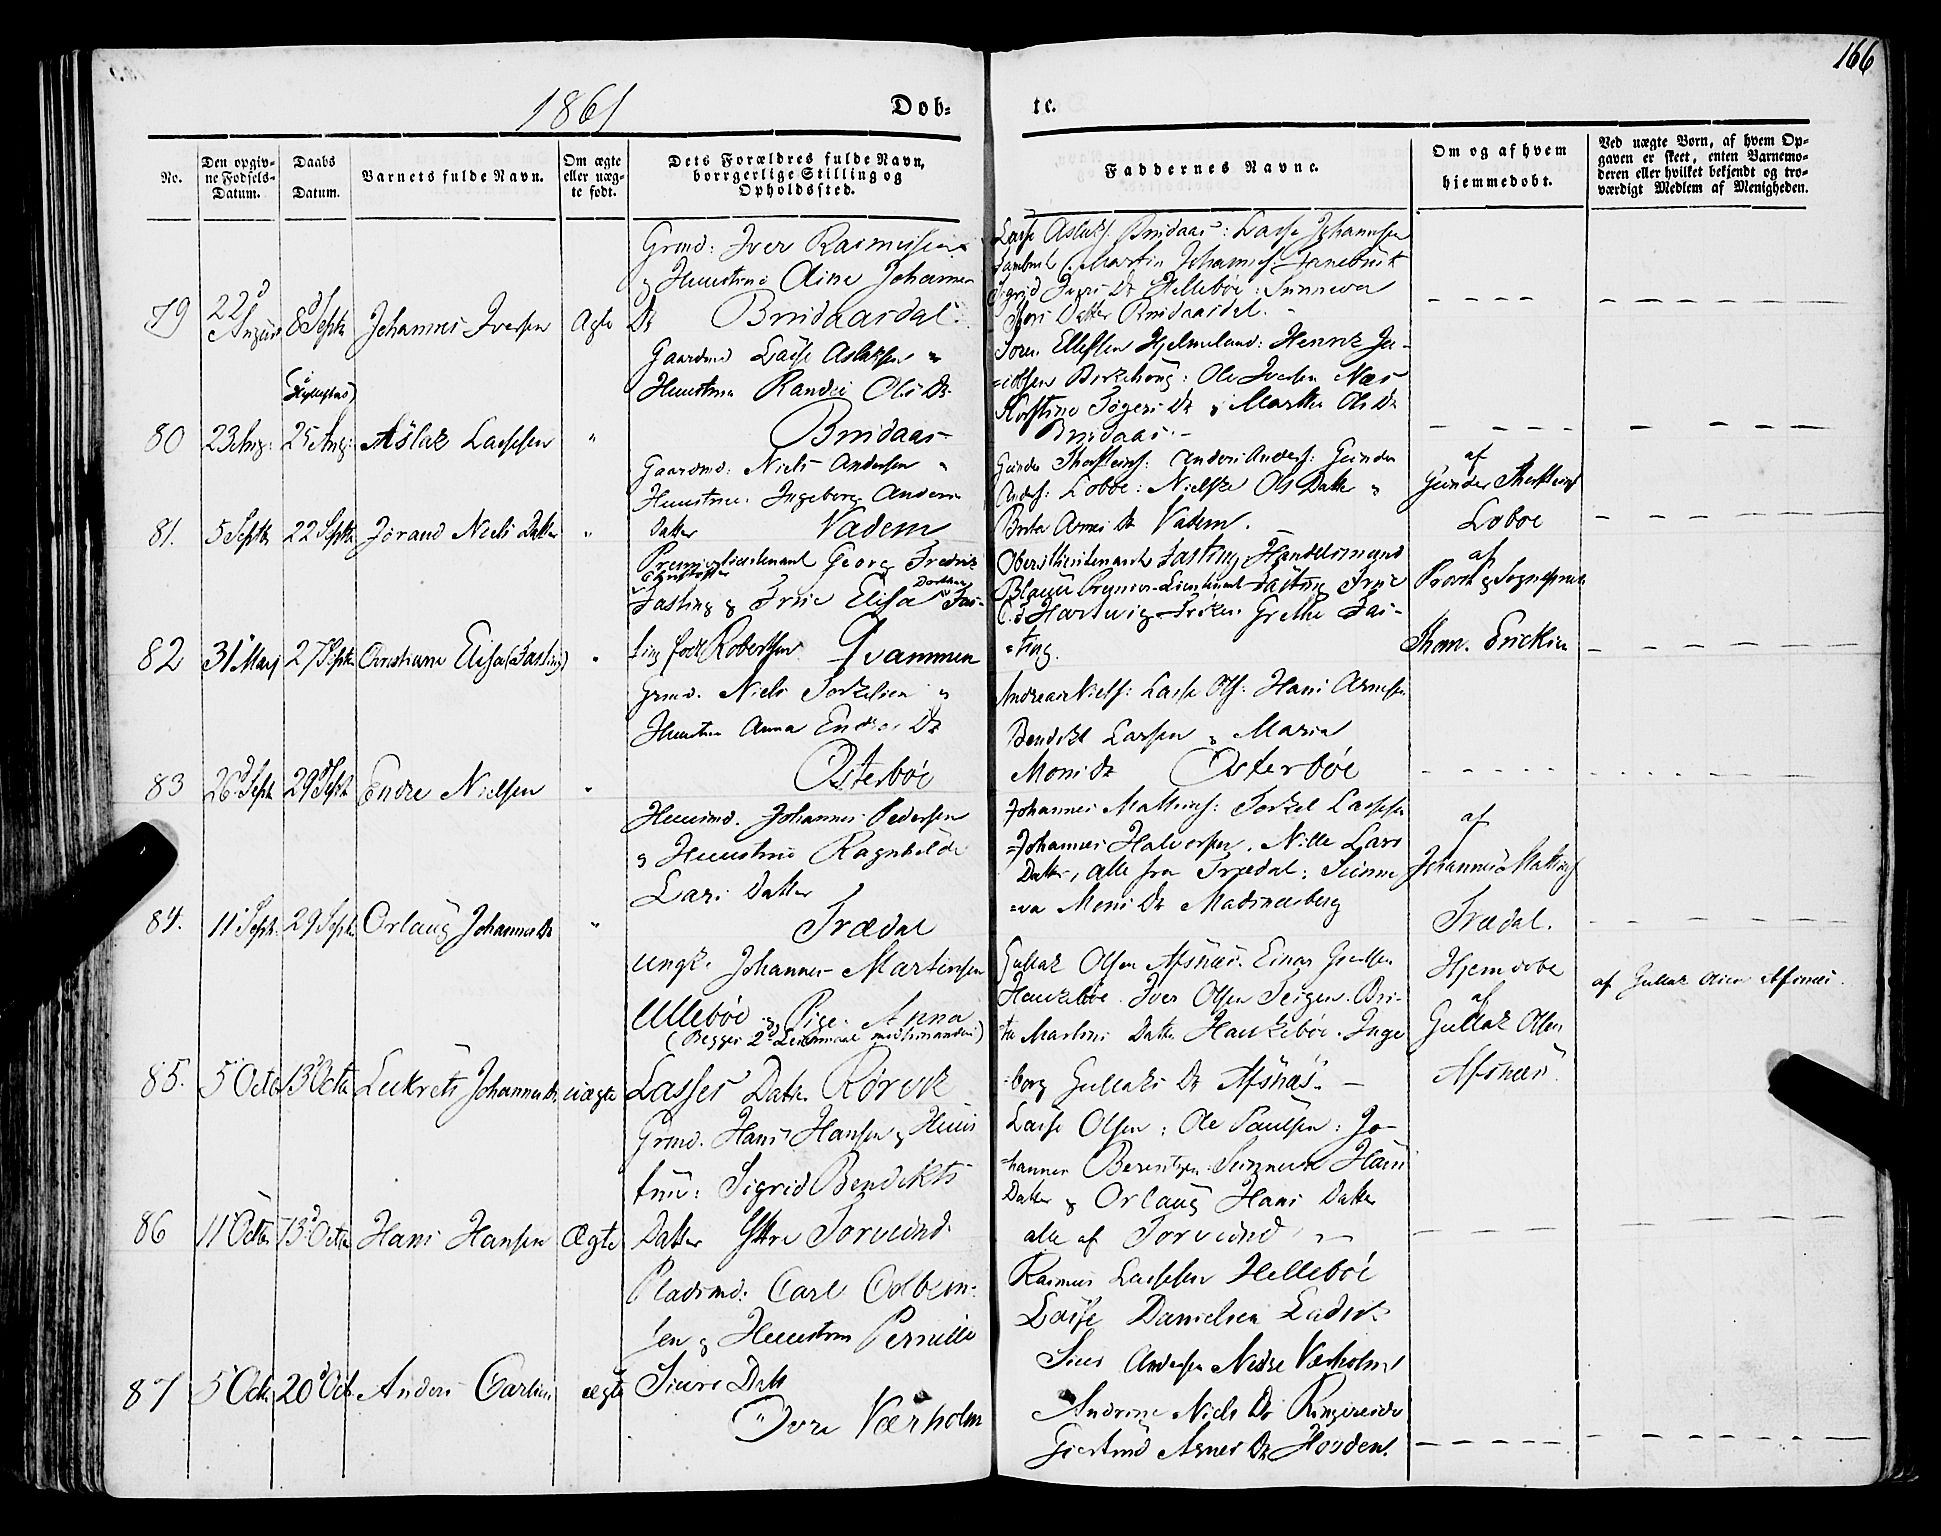 166
1861
Dob=
te.
No.
Den opgiv-
ne Fødsels-
Datum.
Daabs
Datum.
Barnets fulde Navn.
Om ægte
eller uæg-
te født.
Dets Forældres fulde Navn,
borrgerlige Stilling og
Opholdssted.
Faddernes Navne.
Om og af hvem
hjemmedøbt.
Ved uægte Børn, af hvem Op-
gaven er skeet, enten Barnemo-
deren eller hvilket bekjendt og tro-
værdigt Medlem af Menigheden.
79
22d August
8d Septr
Johannes Iversen
Ægte
Grmd: Iver Rasmussen
og Huustrue Johannes
Dr Bruidaasdal
Lasse Aslaks. Bruidaas: Lasse Johannsen
Martin Johannes.
Sigrid Dr Hellebøe: Sunneva
Datter Bruidaasdal.
80
23 Aug:
25 Aug:
Aslak Lassesen
"
Gaardmd Lasse Aslaksen "
Huustrue Randei Ols Dr
Bruidaas
Hjelmeland: Henrik Ja-
=cobsen Birkehoug: Ole Iversen Næs
Dr & Martha Ols Dr
Bruidaas.
81.
5 Septr
22 Septr
Jorand Niels Datter
"
Gaardmd: Niels Andersen "
Huustrue Ingeborg Anders
Datter Vadem
Gunder Thorsteins: Anders Anders: Gunder
Anders: Loboe: Nielske Ols Datter &
Brita Dr Vadem.
af
Gunder Thorsteins
Loboe
82
31 May
27 Septr
Christiane Elisa (Fasting)
"
Premierlieutenant Georg Fredrik
Christopher
Fasting & Frue Elisa Dorthea Fas-
ting født Robertsen Qvammen
Oberstlieutenant Fasting Handelsmand
Blauw Premier-Lieutenant Fasting Frue
Hartwig Frøken Grethe Fas-
=ting.
af
Provst & Sognepræst
Thom. Ericksen
83
26d Septr
29d Septr
Endre Nielsen
"
Grmd. Niels Torkelsen &
Huustrue Anna Endres Dr
Østerbøe
Andreas Niels: Lasse Ols: Hans Arnesen
Bendikt Larsen & Maria
Mons Dr Østerbøe
84.
11 Septr.
29 Septr
Orlaug Johannes Dr
"
Huusmd. Johannes Pedersen
& Huustrue Ragnhilde
Lars Datter
Trædal
Johannes Mathias: Torkel Lassesen
Johannes Halvorsen, Nille Lars
Datter, alle fra Trædal: Sunne
=va Mons Dr
af
Johannes Mathias
Trædal.
85.
5 Octr
13d Octr
Lukrets Johannes Dr
uægte
ungk. Johannes Martinsen
Ullebøe & Pige Anna
(Begges 2d Leiermaal med hinanden)
Lasses Datr. Rørvik
Gullak Olsen Afsnæs. Einar
Haukebøe. Iver Olsen Teigen. Bri-
=tha Martins Datter Haukebøe. Inge
=borg Gullaks Dr Afsnæs. —
Hjemdøbt
af
Gullak Olsen
Afsnæs
af Gullak Olsen Afsnæs.
86
11 Octbr
13d Octr
Hans Hansen
Ægte
Grmd. Hans Hansen & Huus
true: Sigrid Bendikts
Datter Yttre Torvund.
Lasse Olsen: Ole Paulsen: Jo-
=hannes Berentsen Sunneva Hans
Datter & Orlaug Hans Datter
alle af Torvund
87
5 Octr
20d Oct
Anders Carlsen
ægte
Pladsmd: Carl Colbein-
sen & Huustrue Pernille
Siurs Datr
Værholm
Rasmus Lassesen Hellebøe
Lasse Danielsen Ladvik
Siur Andersen Nedre Værholm
Andrine Niels Dr Ringereide
Giertrud Agnes Dr Hovden.